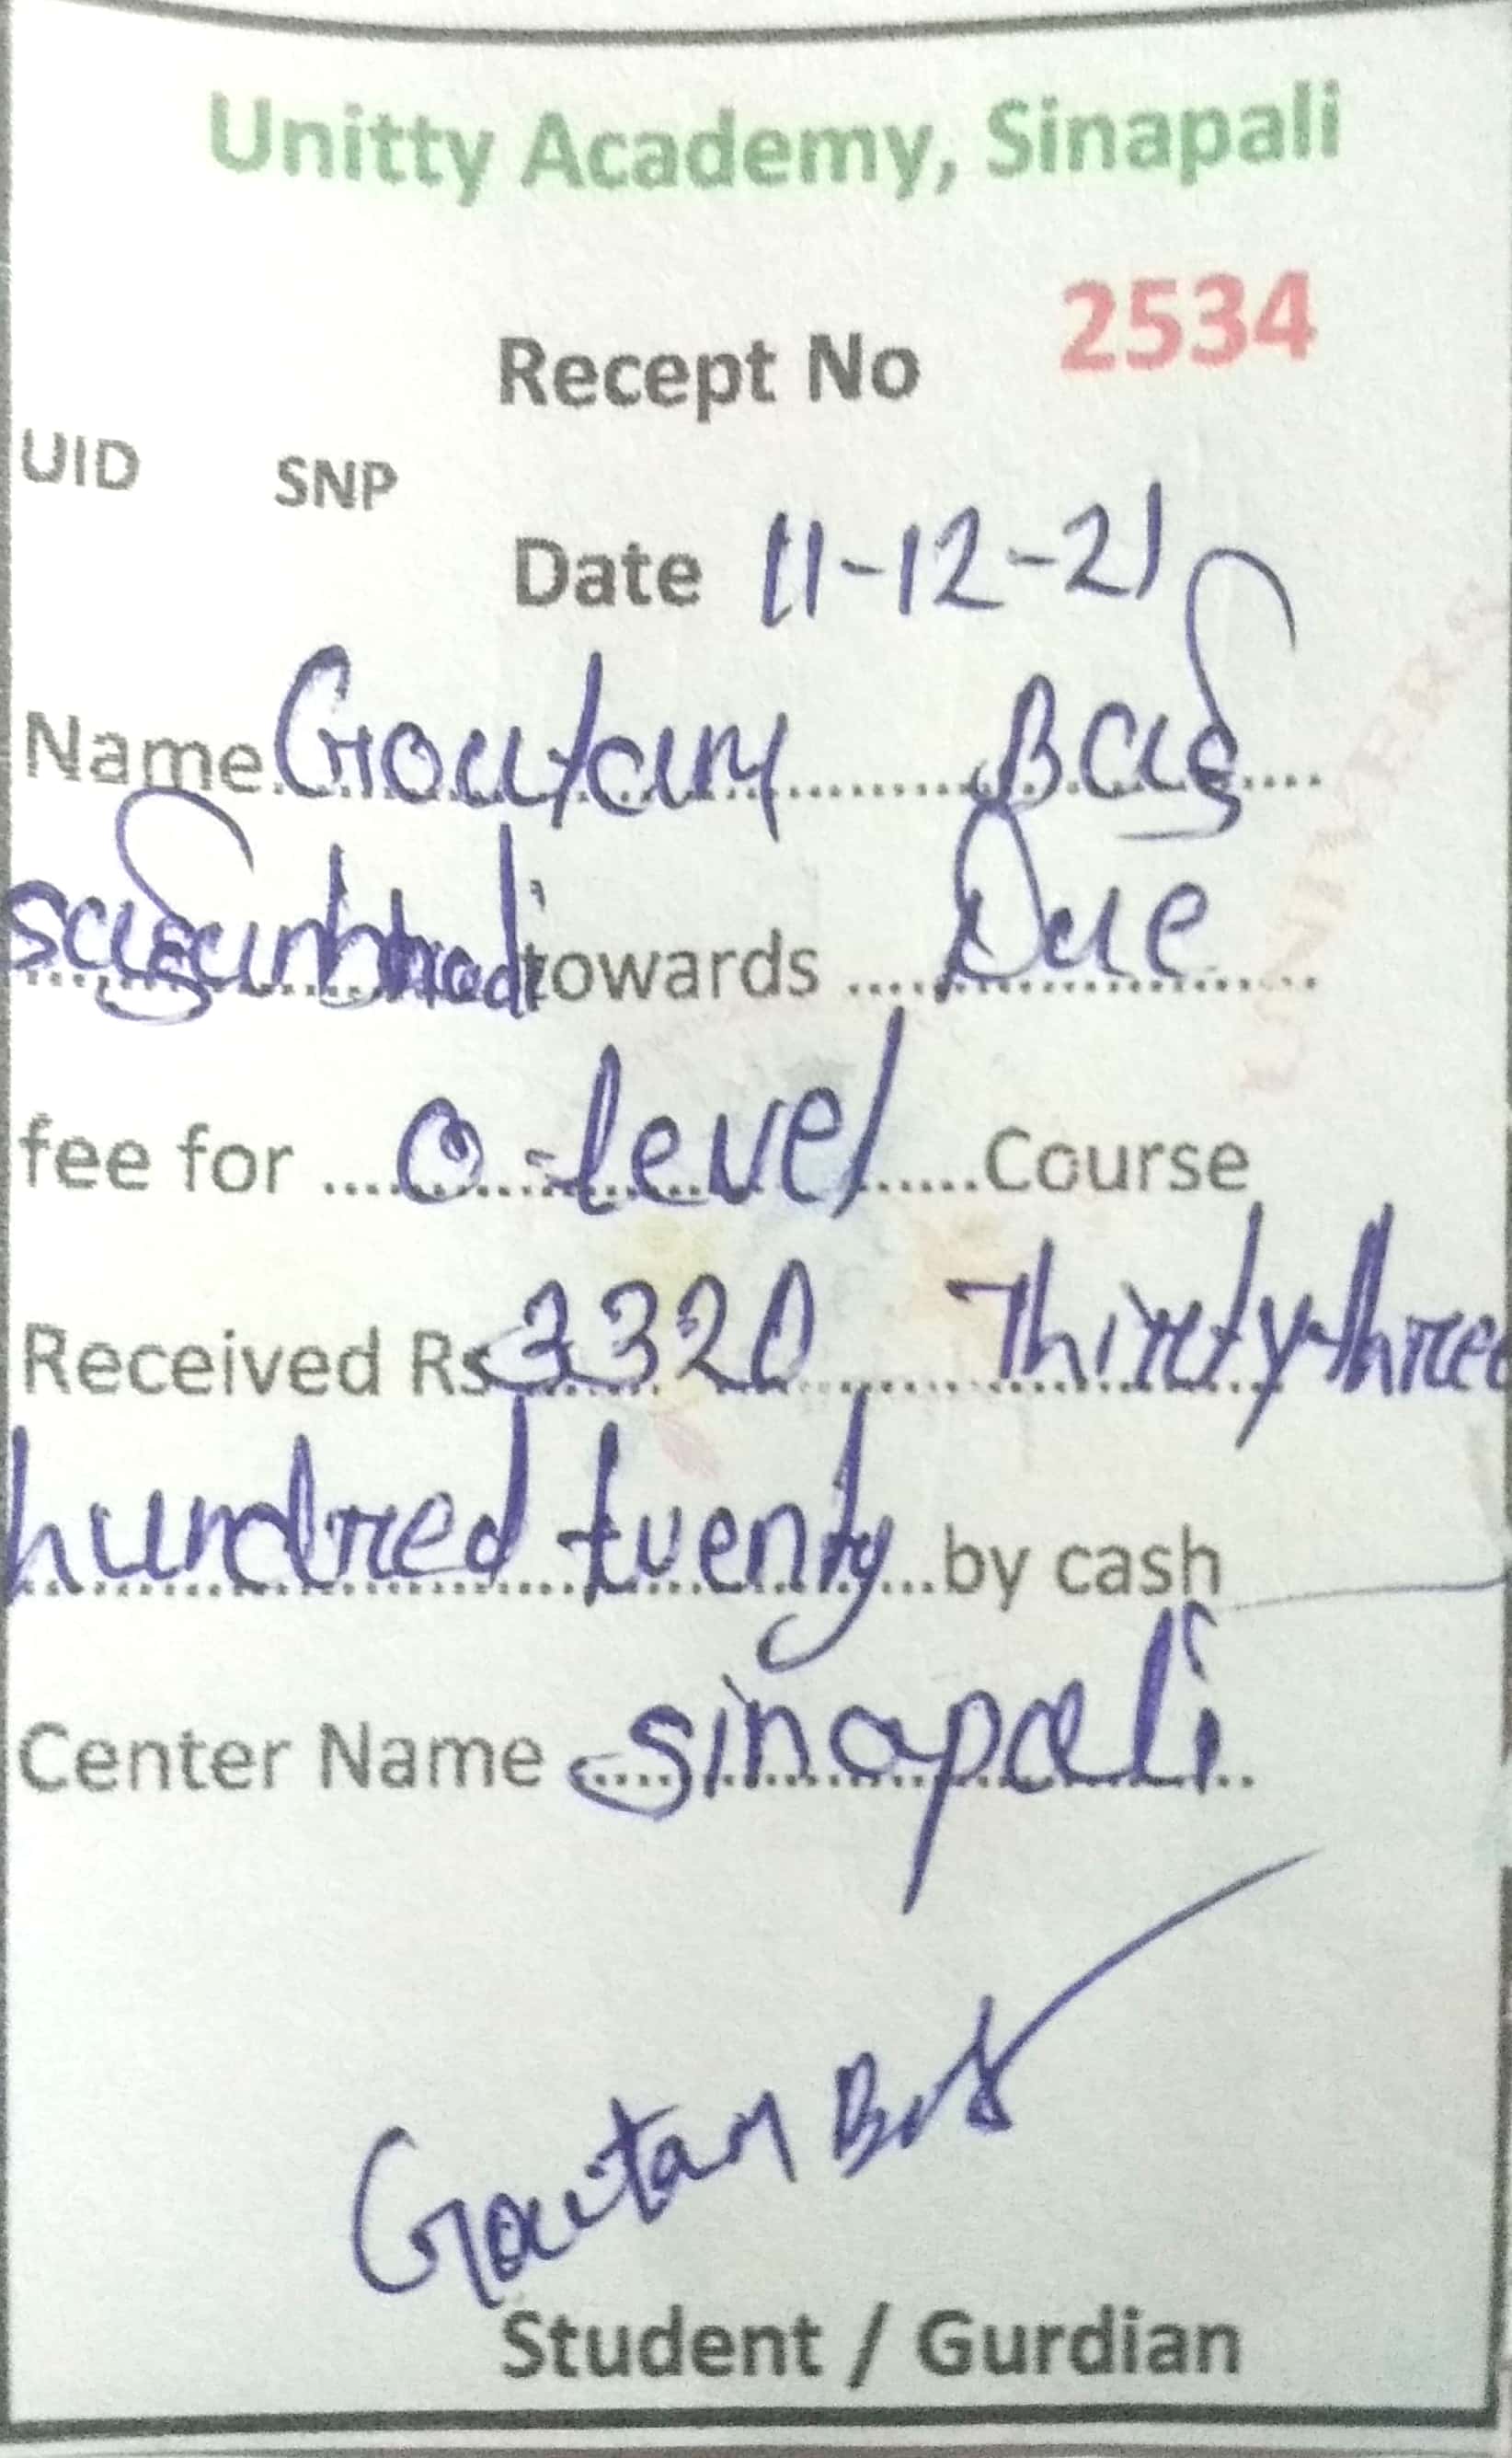 Unitty Academy, Sinapali
Recept No 2534
UID SNP
Date 11-12-21
Name Goutam Bag
towards Due
fee for O-level Course
Received Rs 3320 Thirty three
hundred tuenty by cash
Center Name Sinapali
Goutam Bag
Student / Gurdian